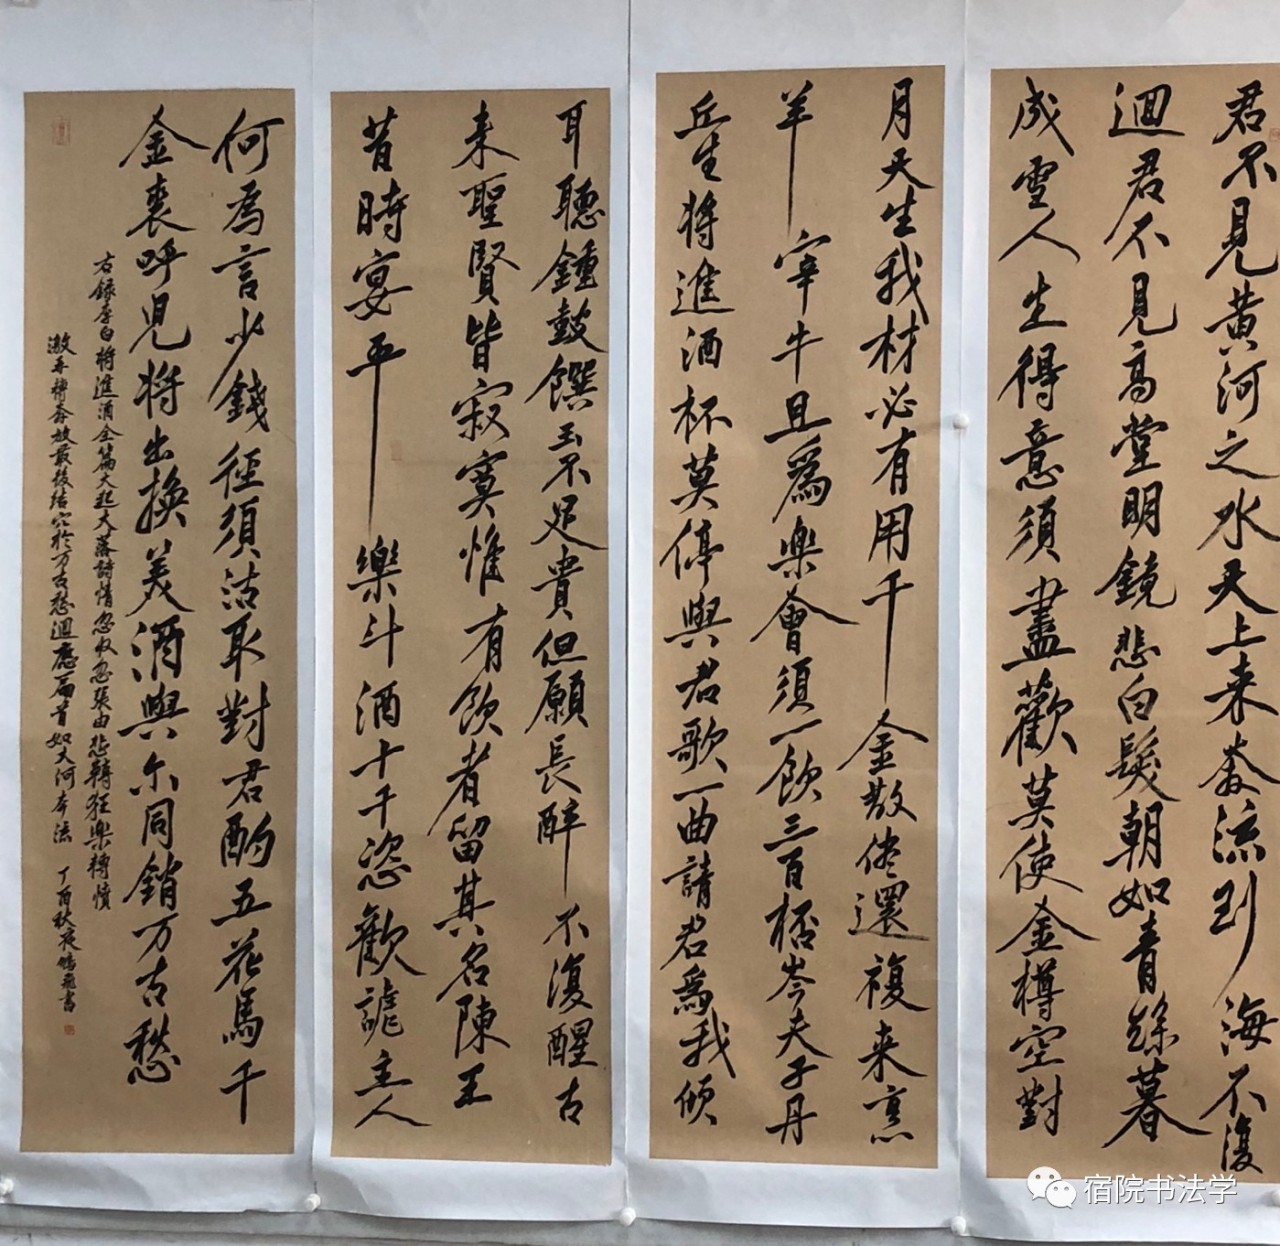 君不見黃河之水天上来奔流到海不復
迴君不見高堂明鏡悲白髮朝如青絲暮
成雪人生得意須盡歡莫使金樽空對
月天生我材必有用千金散侭還複来烹
羊宰牛且為樂會須一飲三百桮岑夫子丹
丘生將進酒杯莫停與君歌一曲請君為我傾
耳聽鍾鼓饌玉不足貴但願長醉不復醒古
来聖賢皆寂寞惟有飲者留其名陳王
昔時宴平樂斗酒十千恣歡謔主人
何為言少錢徑須沽取對君酌五花馬千
金裘呼児將出換美酒與尔同銷万古愁
右錄李白將進酒全篇大起大落詩情忽收忽張由悲轉狂樂轉憤
激再轉奔放最後結穴於万古愁迴應篇首如大河奔流 丁酉秋夜書
宿院书法学